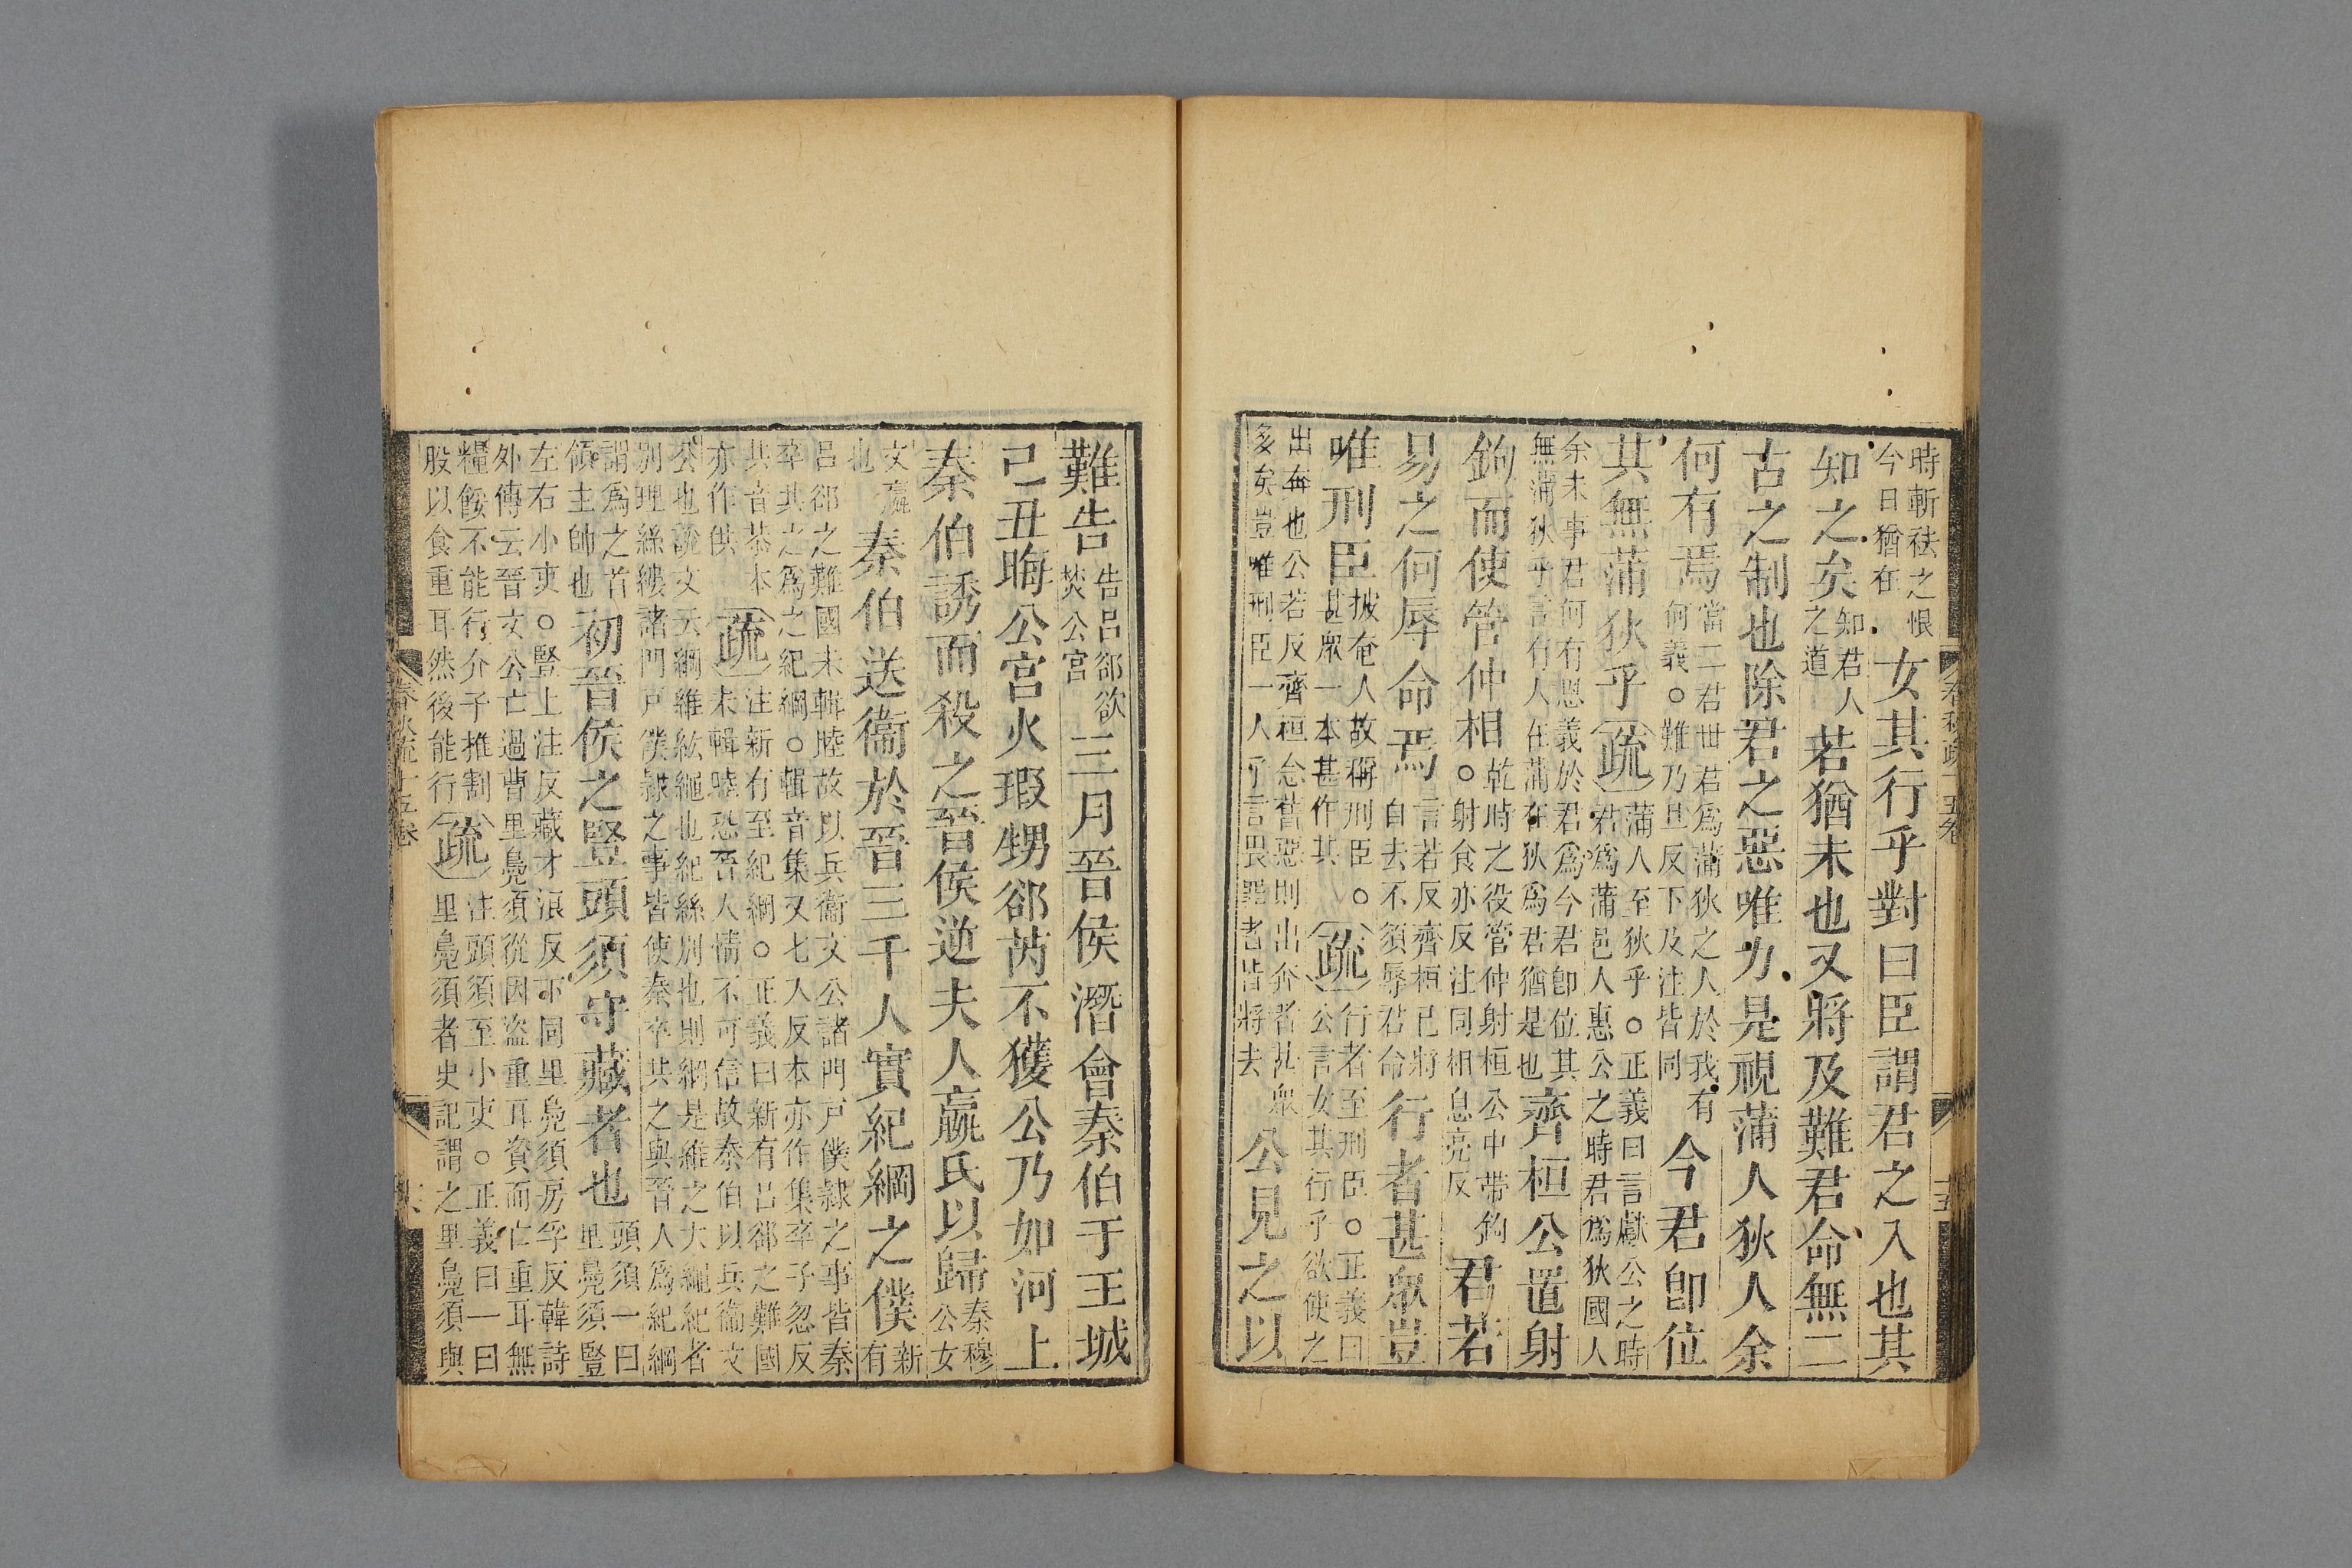 時斬袪之恨
今日猶在
女其行乎對曰臣謂君之入也其
知之矣
知君人
之道
若猶未也又將及難君命無二
古之制也除君之惡唯力是視蒲人狄人余
何有焉
當二君世君為蒲狄之人於我有
何義○難乃旦反下及注皆同
今君卽位
其無蒲狄乎
疏
蒲人至狄乎○正義曰言獻公之時
君爲蒲邑人惠公之時君爲狄國人
余未事君何有恩義於君爲今君卽位其
無蒲狄乎言有人在蒲在狄爲君猶是也
齊桓公置射
鉤而使管仲相
乾時之役管仲射桓公中帶鉤
○射食亦反注同相息亮反
君若
易之何辱命焉
言若反齊桓已將
自去不須辱君命
行者甚衆豈
唯刑臣
披奄人故稱刑臣○
甚衆一本甚作其
疏
行者至刑臣○正義曰
公言女其行乎欲使之
出奔也公若反齊桓念舊惡則出奔者甚衆
多矣豈唯刑臣一人乎言畏罪者皆將去
公見之以
難告
告呂郤欲
焚公宮
三月晉侯潛會秦伯于王城
己丑晦公宮火瑕甥郤芮不獲公乃如河上
秦伯誘而殺之晉侯逆夫人嬴氏以歸
秦穆
公女
文嬴
也
秦伯送衞於晉三千人實紀綱之僕
新
有
呂郤之難國未輯睦故以兵衞文公諸門戶僕隷之事皆秦
卒共之爲之紀綱○輯音集又七入反本亦作集卒子忽反
共音恭本
亦作供
疏
注新有至紀綱○正義曰新有呂郤之難國
未輯睦恐晉人情不可信故秦伯以兵衞文
公也說文云綱維紘繩也紀絲別也則綱是維之大繩紀者
別理絲縷諸門戶僕隷之事皆使秦卒共之與晉人爲紀綱
謂爲之首
領主帥也
初晉侯之豎頭須守藏者也
頭須一曰
里鳧須豎
左右小吏○豎上注反藏才浪反下同里鳧須房孚反韓詩
外傳云晉文公亡過曹里鳧須從因盜重耳資而亡重耳無
糧餒不能行介子推割
股以食重耳然後能行
疏
注頭須至小吏○正義曰一曰
里鳧須者史記謂之里鳧須與
春秋疏十五卷